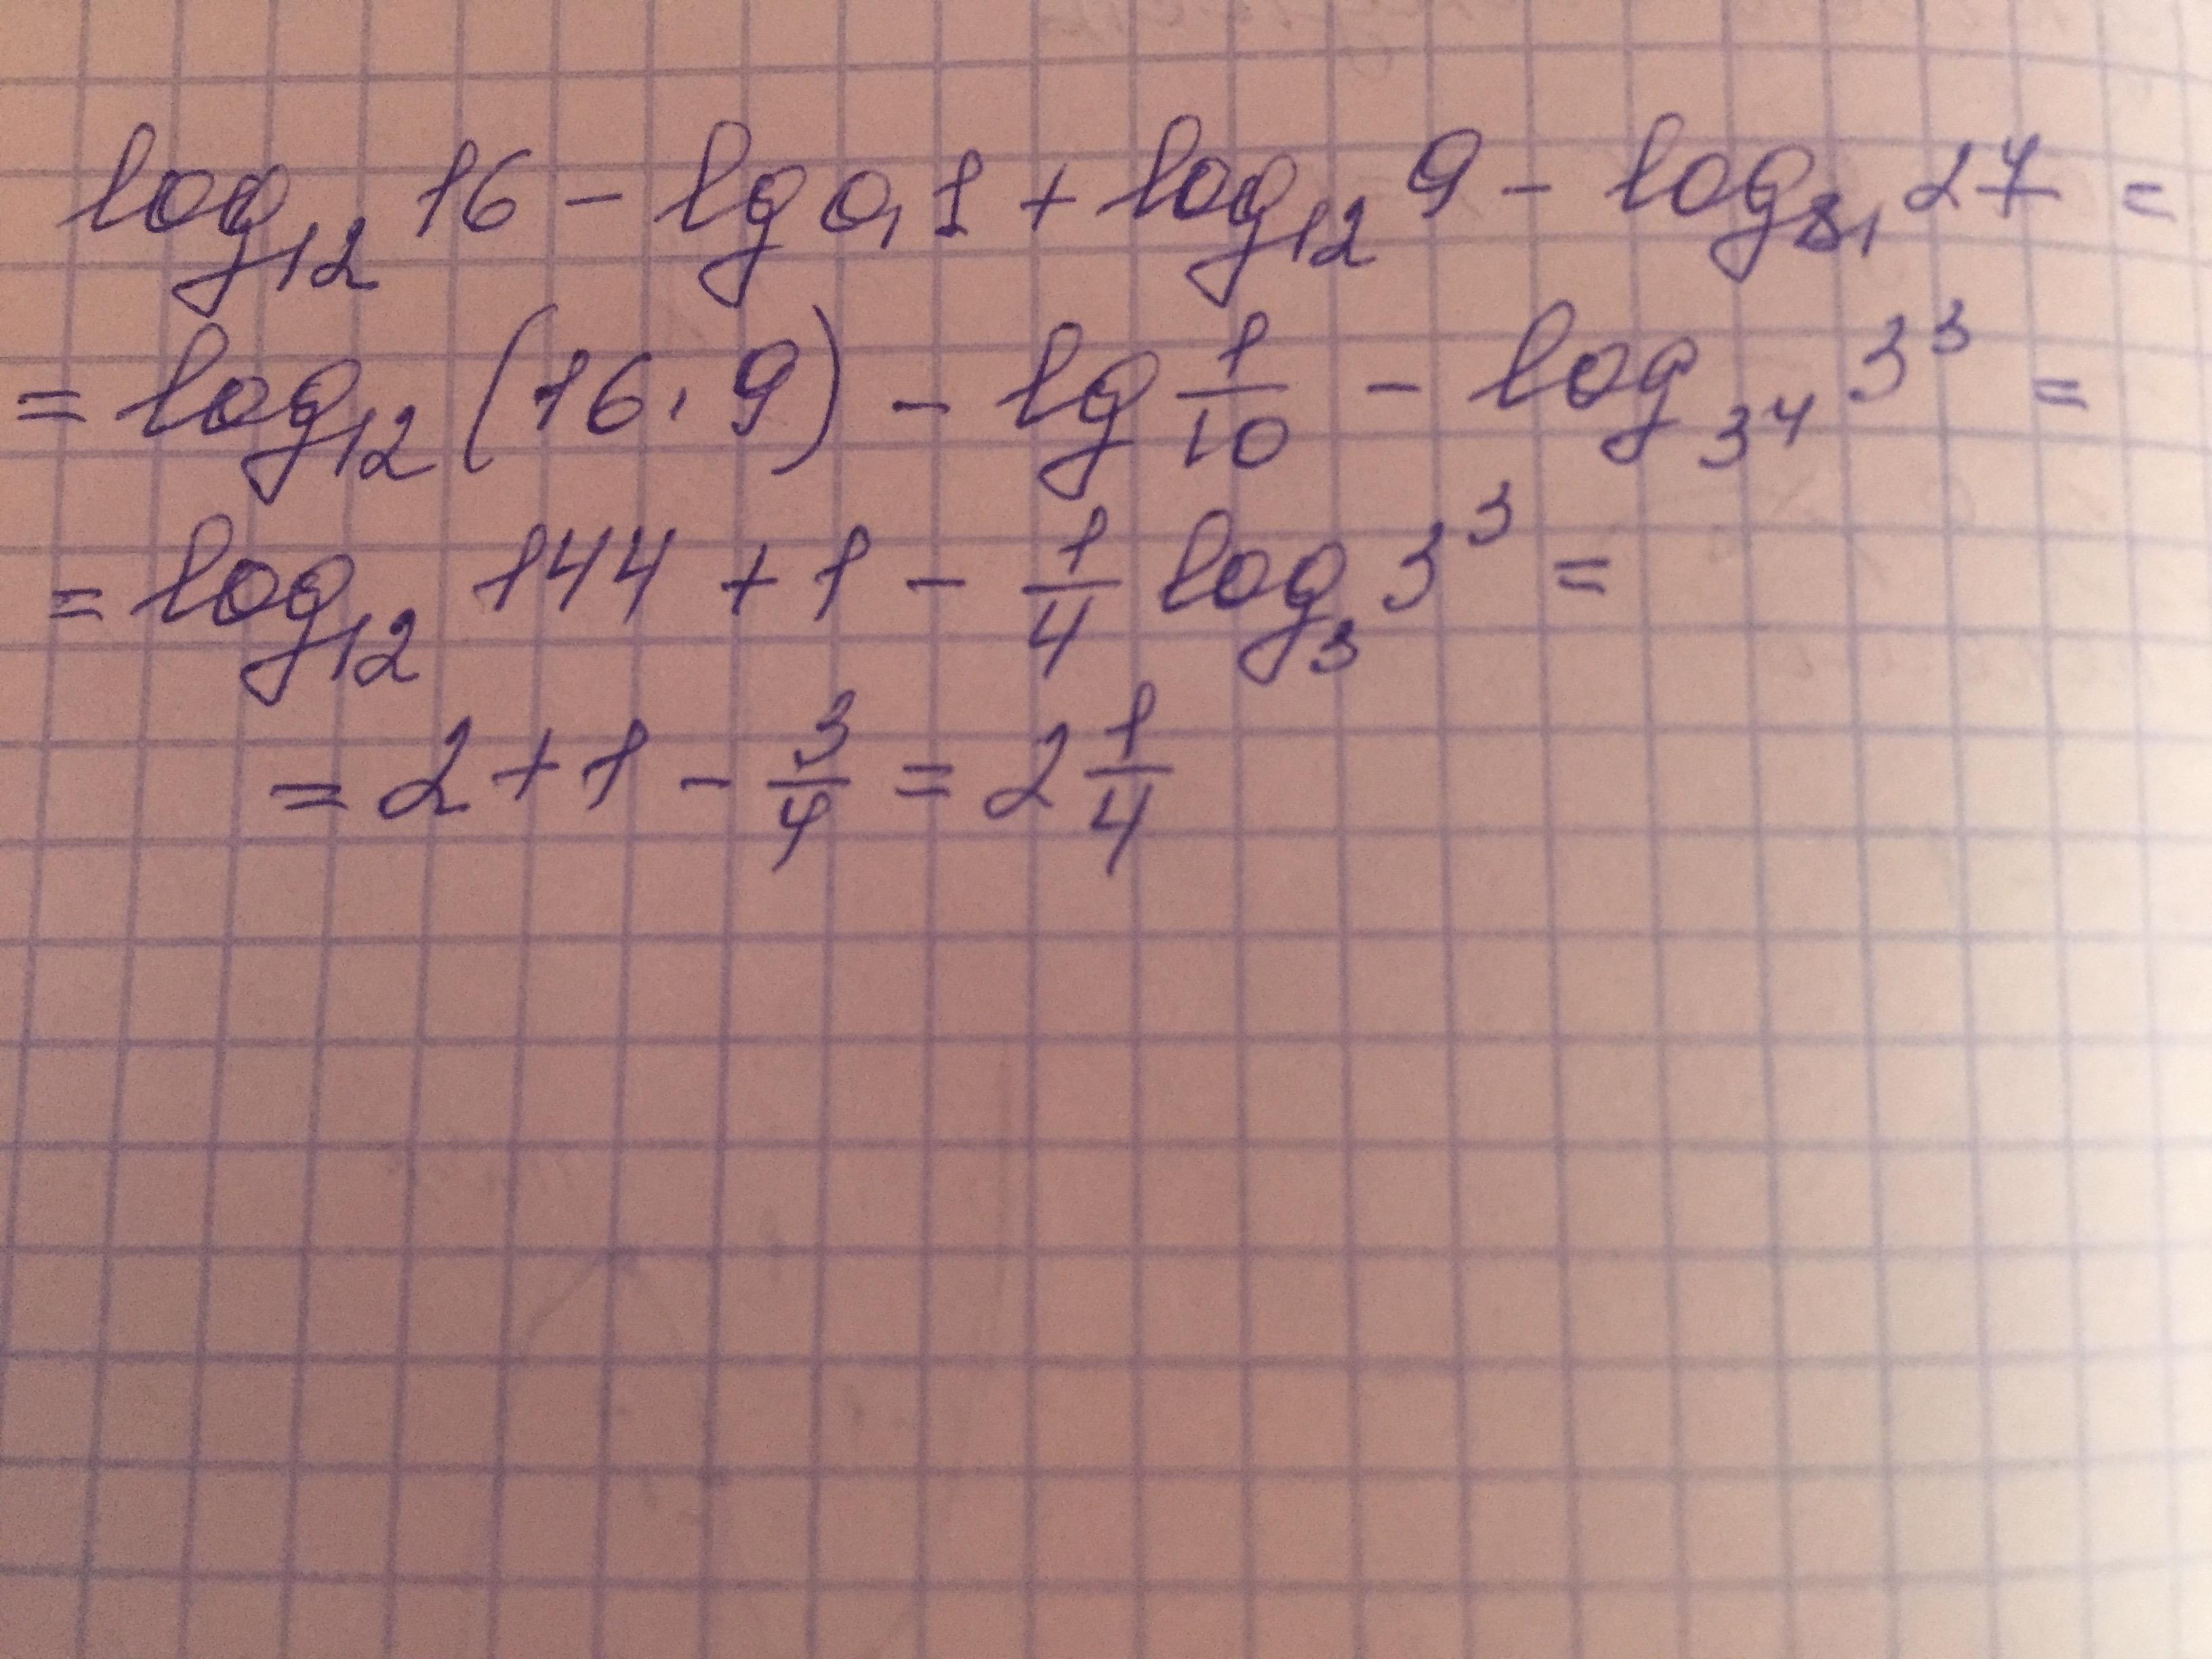 log₁₂ 16 - lg 0,1 + log₁₂ 9 - log₈₁ 27 =
= log₁₂ (16 · 9) - lg 1/10 - log_{3⁴} 3³ =
= log₁₂ 144 + 1 - 1/4 log₃ 3³ =
= 2 + 1 - 3/4 = 2 1/4